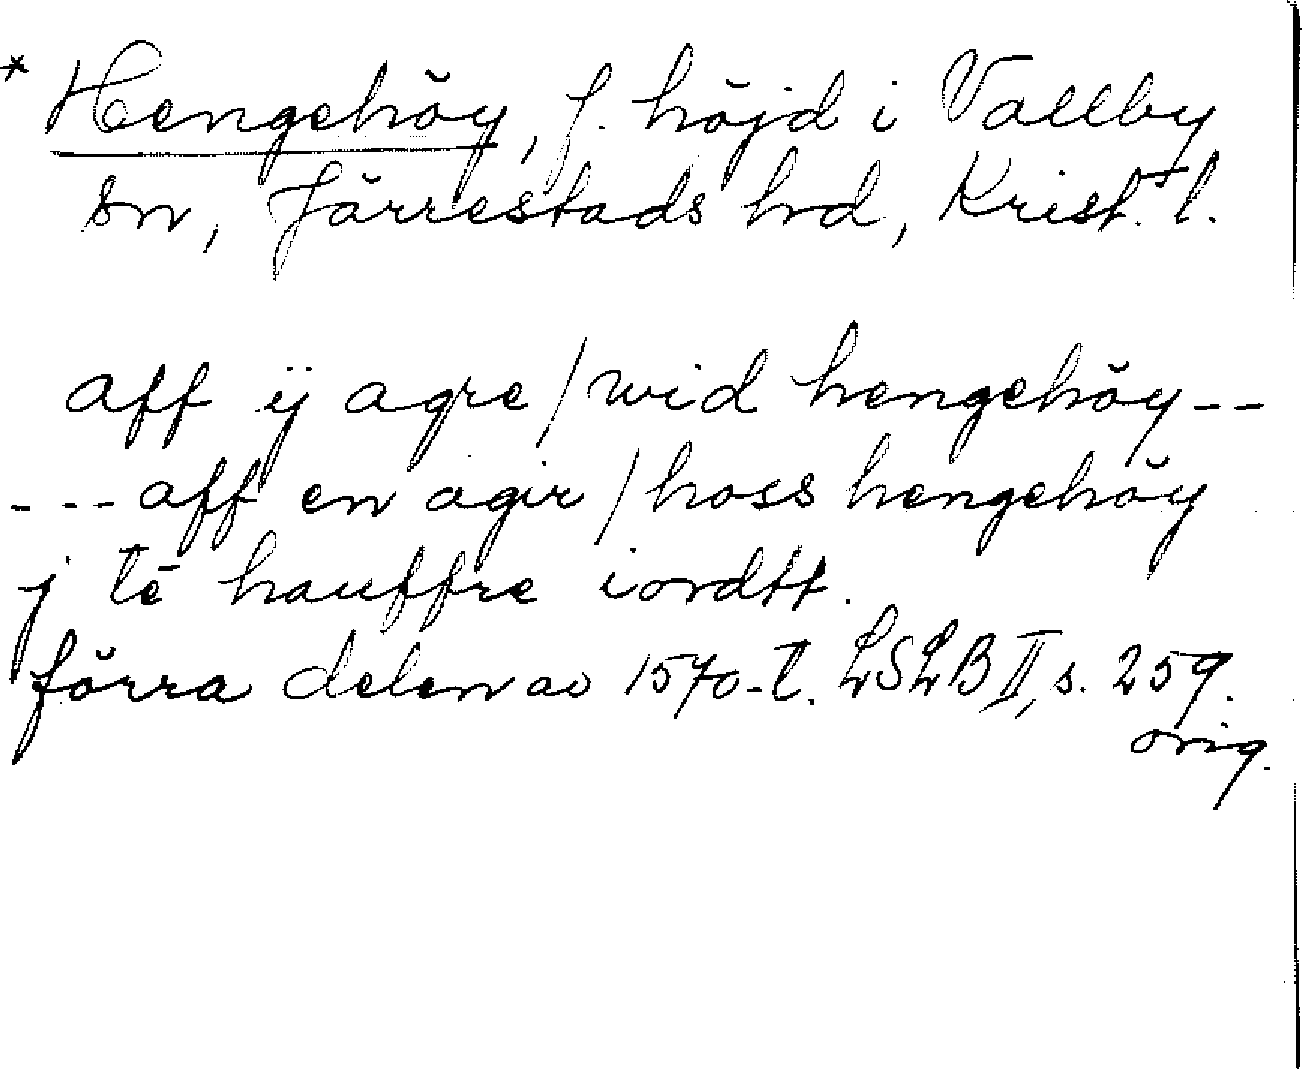 * Hengehöy, f. höjd i Vallby
sn, Järrestads hrd, Krist. l.
aff ij agre / wid hengehöy --
--- aff en agir / hoss hengehöy
j tē hauffre iordtt.
förra delen av 1570-t. LSLB II, s. 259.
orig.